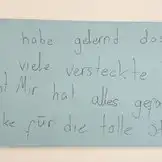 habe gelernd das
viele versteckte
Mir hat alles
für die tolle